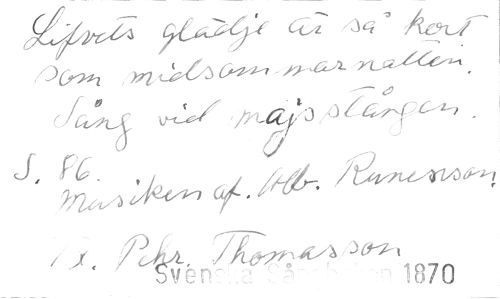 Lifvets glädje är så kort
som midsommarnatten.
Sång vid majsstången.
S. 86.
Musiken af. Alb. Runesson.
Tx. Pehr. Thomasson
Svenska 1870